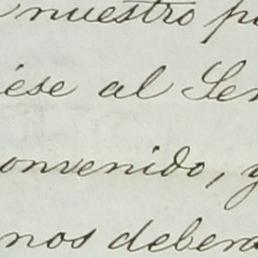 nuestro p
iese al Sen
onvenido, y
nos debera